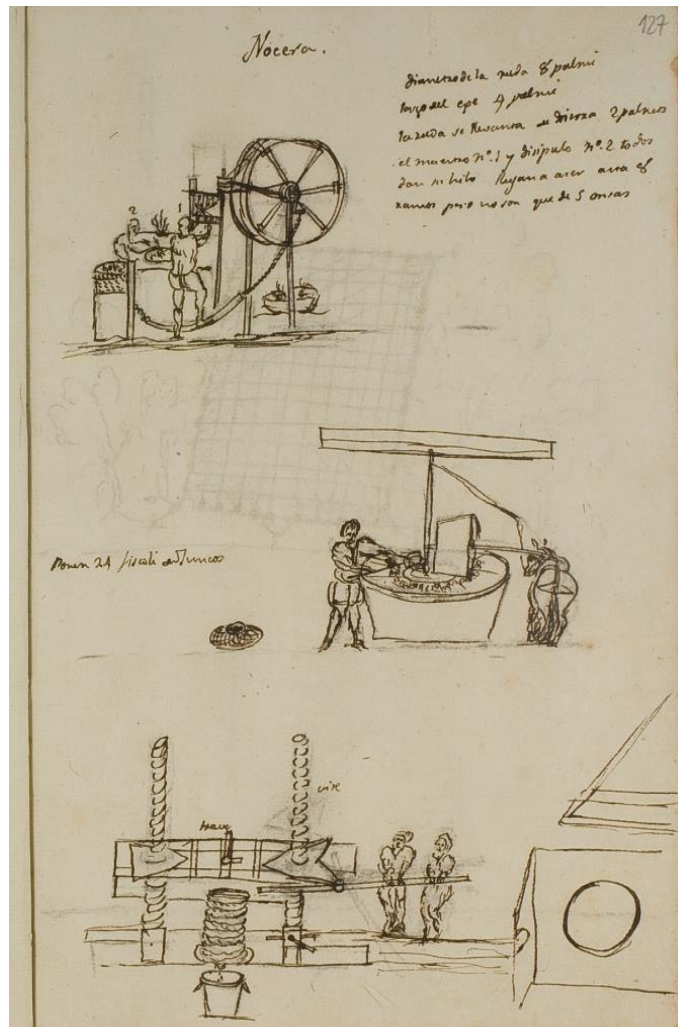 127
Nocera.
diametro de la ruda 8 palmi
largo del epe 4 palmi
la ruda se levanta de tierra 2 palmos
el maestro nº. 1 y disipulo nº. 2 todos
dan su hilo llegan a aser asta 8
ramos pero no son que de 5 onsas
2
1
Ponen 24 fiscoli de Juncos
vite
trave